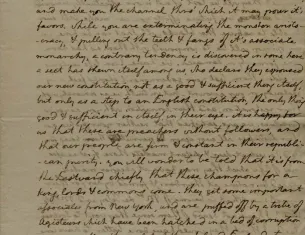 and make you the channel thro' which it may pour it's
favors. while you are exterminating the monster aristo-
-cracy, & pulling out the teeth & fangs of it's associate
monarchy, a contrary tendency is discovered in some here.
a sect has shewn itself among us, who declare they espoused
our new constitution, not as a good & sufficient thing itself,
but only as a step to an English constitution, the only thing
good & sufficient in itself, in their eye. it is happy for
us that these are preachers without followers, and
that our people are firm & constant in their republi-
-can purity. you will wonder to be told that it is from
the Eastward chiefly that these champions for a
king, lords & commons come. they get some important
associates from New York, and are puffed off by a tribe of
Agioteurs which have been hatched in a bed of corruption